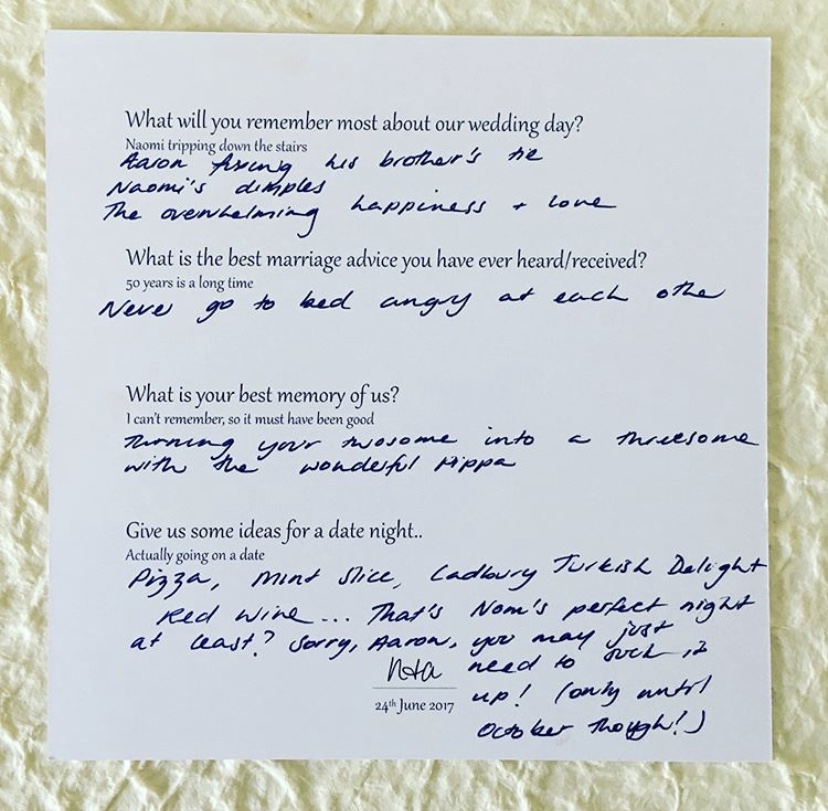 What will you remember most about our wedding day?
Naomi tripping down the stairs
Aaron fixing his brother's tie
Naomi's dimples
The overwhelming happiness + love
What is the best marriage advice you have ever heard/received?
50 years is a long time
Never go to bed angry at each other
What is your best memory of us?
I can't remember, so it must have been good
Turning your twosome into a threesome
with the wonderful Pippa
Give us some ideas for a date night..
Actually going on a date
Pizza, Mint Slice, Cadbury Turkish Delight
Red wine... That's Nom's perfect night
at least? Sorry, Aaron, you may just
need to suck it
up! (only until
October though!)
24th June 2017